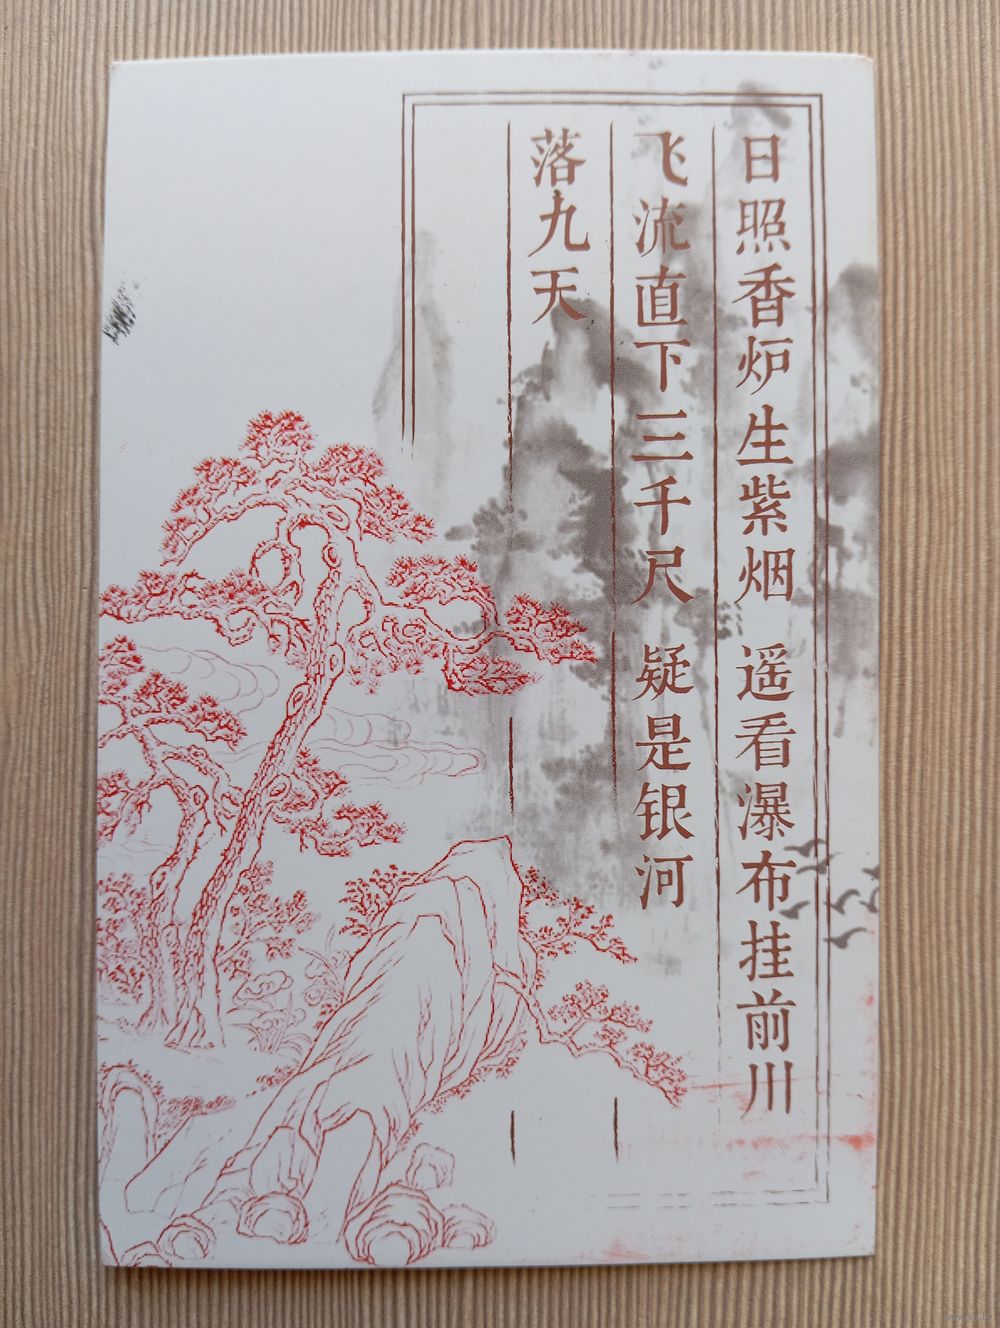 日照香炉生紫烟 遥看瀑布挂前川
飞流直下三千尺 疑是银河
落九天